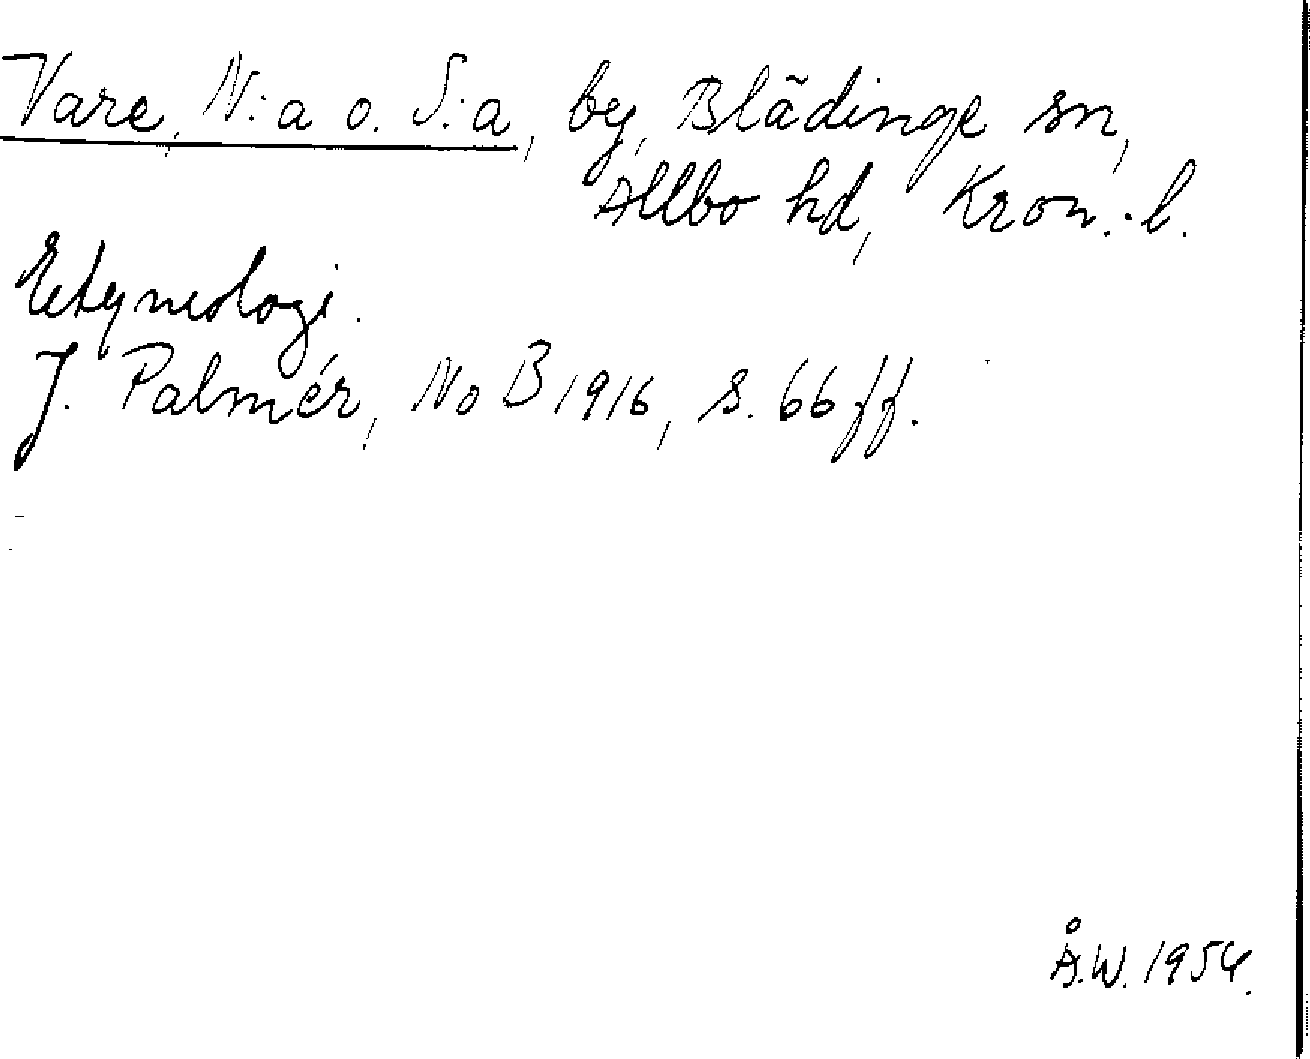 Vare, N:a o. S:a, by, Blädinge sn,
Allbo hd, Kron.-l.
Etymologi.
J. Palmér, NoB 1916, s. 66 ff.
Å.W. 1954.